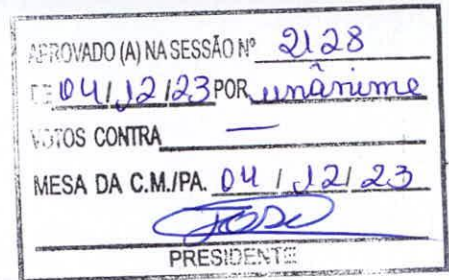 APROVADO (A) NA SESSÃO Nº 2128
DE 04/12/23 POR unânime
VOTOS CONTRA —
MESA DA C.M./PA. 04/12/23
PRESIDENTE